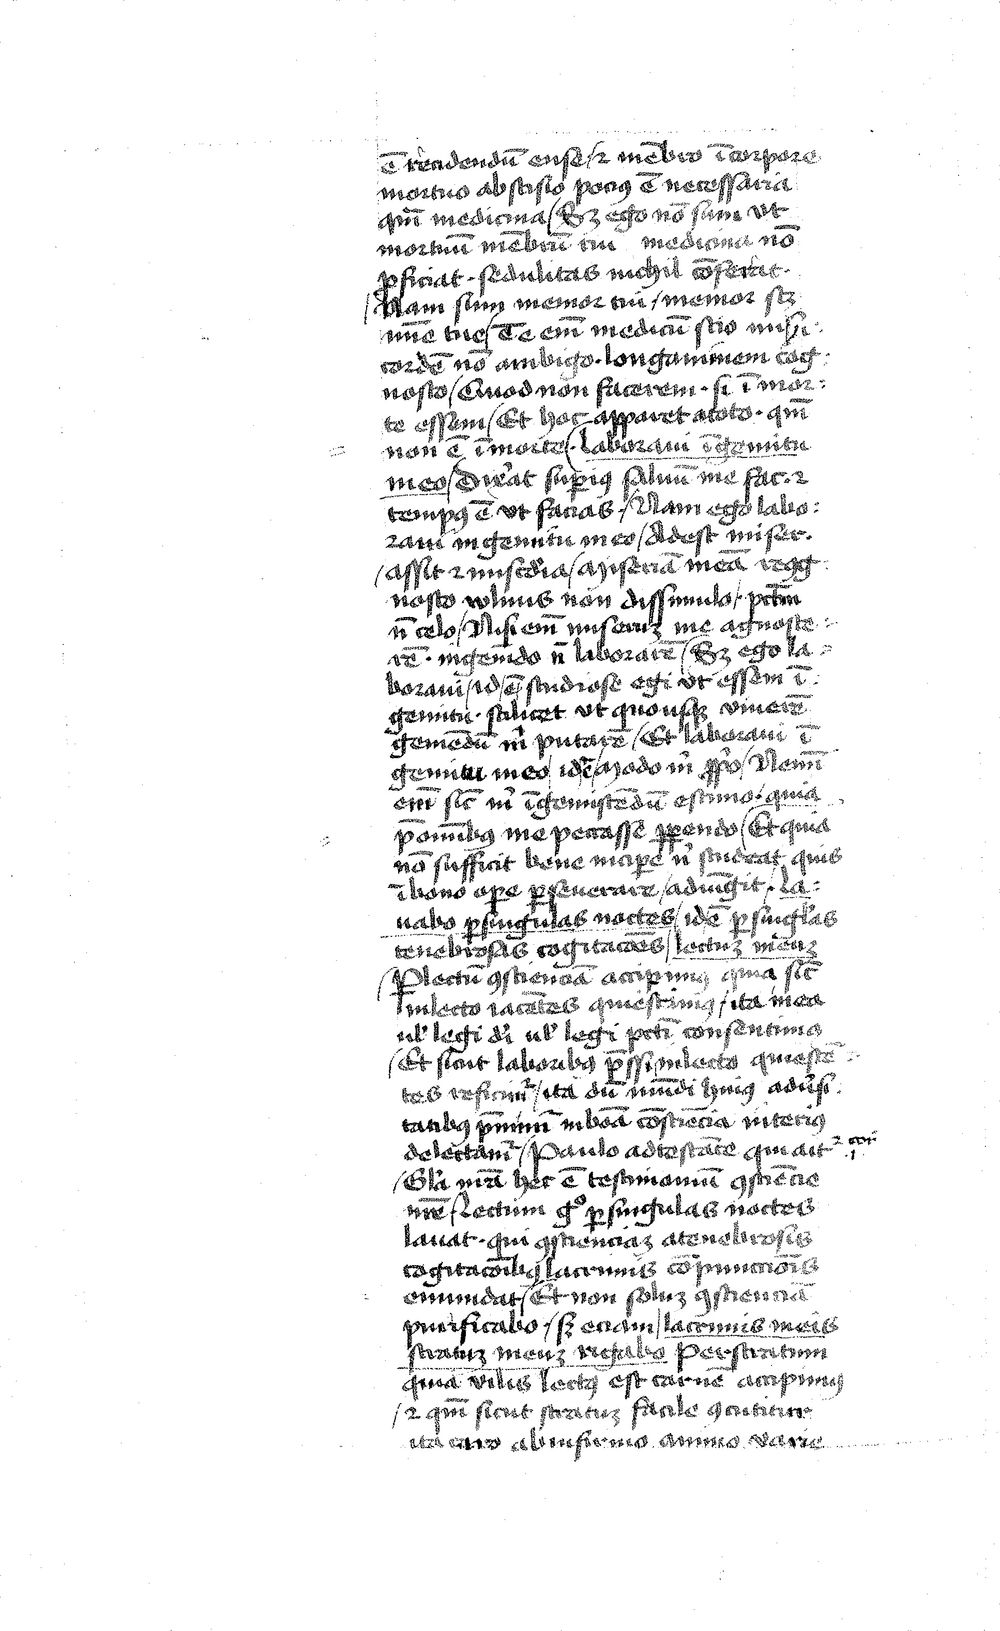 ē recidendū ense / ⁊ mēbro ī corpore
mortuo abscisio pociꝰ ē necessaria
qm̄ medicina / Sꝫ ego nō sum vt
mortuū mēbrū cui medicina nō
ꝓficiat · sedulitas nichil cōferat ·
/ Nam sum memor tui / memor scꝫ
mīe tue / Te em̄ medicū scio misi
cordē nō ambigo · longanimem cog
nosco / Quod non facerem · si ī mor
te essem / Et hoc apparet a toto · qm̄
non ē ī morte / laboraui ī gemitu
meo / Dixͣat supiꝰ saluū me fac · ⁊
tempꝰ ē vt facias · / Nam ego labo
raui in gemitu meo / Adest miser ·
/ assit ⁊ misc̄dia / Miseriā meā recog
nosco vulnus non dissimulo / · pctm̄
n̄ celo / Nisi em̄ miseruꝫ me agnosce
rē · in gem̄do n̄ laborarē / Sꝫ ego la
boraui / id ē studiose egi vt essem ī
gemitu · scilicet vt quousqꝫ viuerē
gemēdū m̄ putarē / Et laboraui ī
gemitu meo id ē Modo m̄ Nemī
em̄ sic̄ m̄ ī gemiscēdū estimo · quia
p̄ omībꝰ me peccasse ꝑpendo / Et quia
nō sufficit bene incipe n̄ studeat quis
ī bono ope ꝑseuerare / adiungit / · La
uabo ꝑ singulas noctes / id ē ꝑ singlas
tenebrosas cogitacōēs / lectuꝫ meuꝫ
/ P lectū ꝯscienciā accipimꝰ quia sic̄
in lecto iacētes quiescimꝰ / ita in ea
ul̄ legi di ul̄ legi pcti consentimꝰ
/ Et sicut laboribꝰ p̄ssi in lecto quiescē
tes reficimͬ / ita dū mūdi huiꝰ aduͥsi
tatibꝰ p̄mim̄ in bōa cōsciēcia interiꝰ
delectamͬ / Paulo adtestāte qui ait ² cor̄ · 1 ·
/ Gla nr̄a hec ē testimoniū ꝯsciēcie
nrē / Lectum gͦ ꝑ singulas noctes
lauat · qui ꝯscienciaꝫ a tenebrosis
cogitacōibꝰ lacrimis cōpunctiōis
emundat / Et non soluꝫ ꝯscienciā
purificabo / · sꝫ eciam / lacrimis meis
stratuꝫ meuꝫ rigabo Per stratum
quia vilis lectꝰ est carnē accipimꝰ
/ ⁊ qm̄ sicut stratuꝫ facile ꝯcutitur
ita caro ab infirmo animo varie